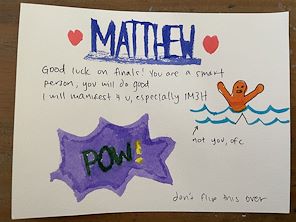 MATTHEW
Good luck on finals! You are a smart
person, you will do good
I will manifest 4 u, especially 1M3H
not you, ofc
POW!
don't flip this over